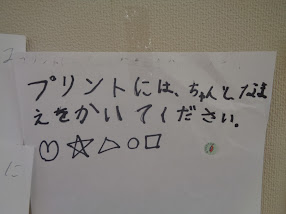 プリントには、ちゃんと、なま
えをかいてください。
♡☆△○□
に